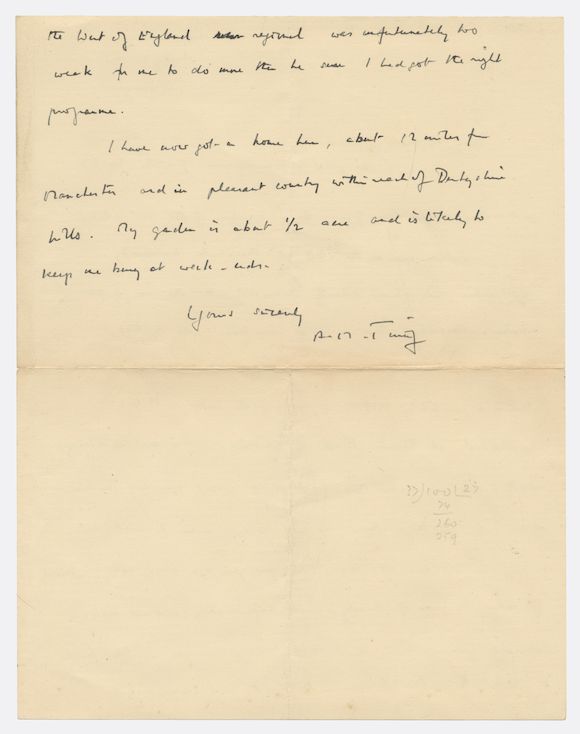 the West of England regional was unfortunately too
weak for me to do more than be sure I had got the right
programme.
I have now got a home here, about 12 miles from
Manchester and in pleasant country within reach of Derbyshire
hills. My garden is about 1/2 acre and is likely to
keep me busy at week-ends.
Yours sincerely
A. M. Turing
37)100(27
74
260
259